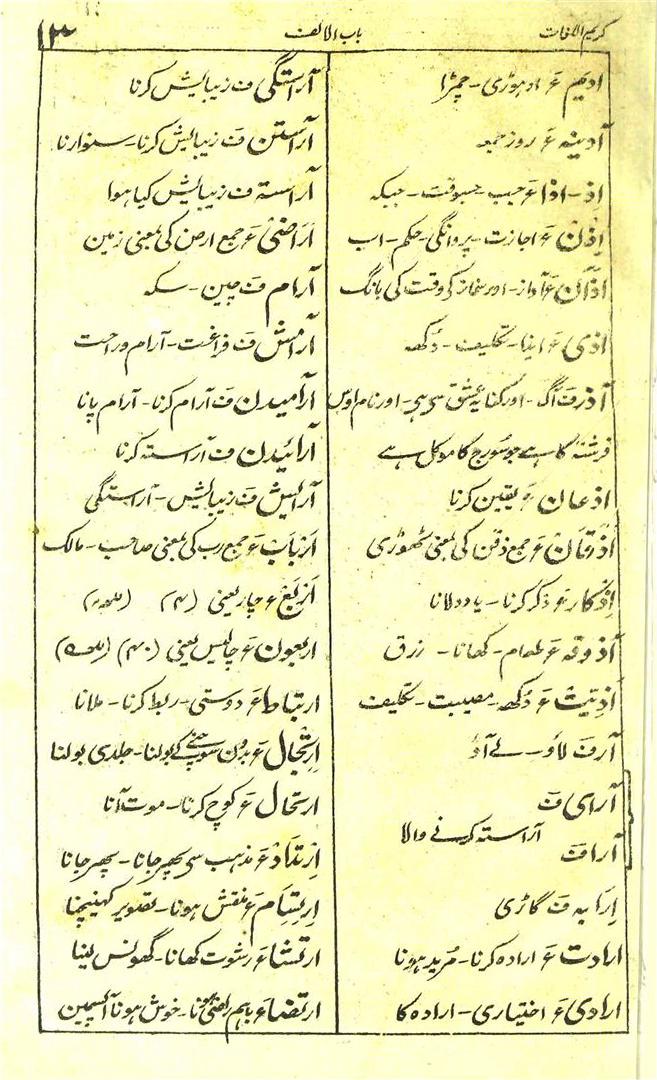 کریم اللغات
باب الالف
۱۳
ادیم ء ادھوڑی۔ چمڑا
آدینہ ء روز جمعہ
اذ۔ اذا ء جب۔ جسوقت۔ جبکہ
اِذن ء اجازت۔ پروانگی۔ حکم۔ اب
اذان ء آواز۔ اور نماز کی وقت کی بانگ
اذی ء ایذا۔ تکلیف۔ دُکھ
آذر ف آگ۔ اور کنایہ عشق سی ہی۔ اور نام اوس
فرشتہ کا ہے جو سورج کا موکل ہے
اذعان ء یقین کرنا
اَذقان ء جمع ذقن کی بمعنی ٹھوڑی
اِذکار ء ذکر کرنا۔ یاد دلانا
آذوقہ ء طعام۔ کھانا۔ رزق
اَذِیّت ء دُکھ۔ مصیبت۔ تکلیف
آر ف لاؤ۔ لے آؤ
آرای ف
آراستہ کرنے والا
آرا ف
اِرابہ ف گاڑی
ارادت ء ارادہ کرنا۔ مُرید ہونا
ارادی ء اختیاری۔ ارادہ کا
آراستگی ف زیبایش کرنا
آراستن ف زیبایش کرنا۔ سنوارنا
آراستہ ف زیبایش کیا ہوا
اَراضی ء جمع ارض کی بمعنی زمین
آرام ف چین۔ سکہ
آرامش ف فراغت۔ آرام و راحت
آرامیدن ف آرام کرنا۔ آرام پانا
آرائیدن ف آراستہ کرنا
آرائیش ف زیبایش۔ آراستگی
اَرباب ء جمع رب کی بمعنی صاحب۔ مالک
اَربع ء چار یعنی (۴)
اربعون ء چالیس یعنی (۴۰)
ارتباط ء دوستی۔ ربط کرنا۔ ملانا
اِرتجال ء بدون سوچنے کے بولنا۔ جلدی بولنا
ارتحال ء کوچ کرنا۔ موت آنا
اِرتداد ء مذہب سی پھر جانا۔ پھر جانا
اِرتسام ء نقش ہونا۔ تصویر کھینچنا
ارتشاء ء رشوت کھانا۔ گھونس لینا
ارتضاء ء باہم راضی ہونا۔ خوش ہونا آپسمین